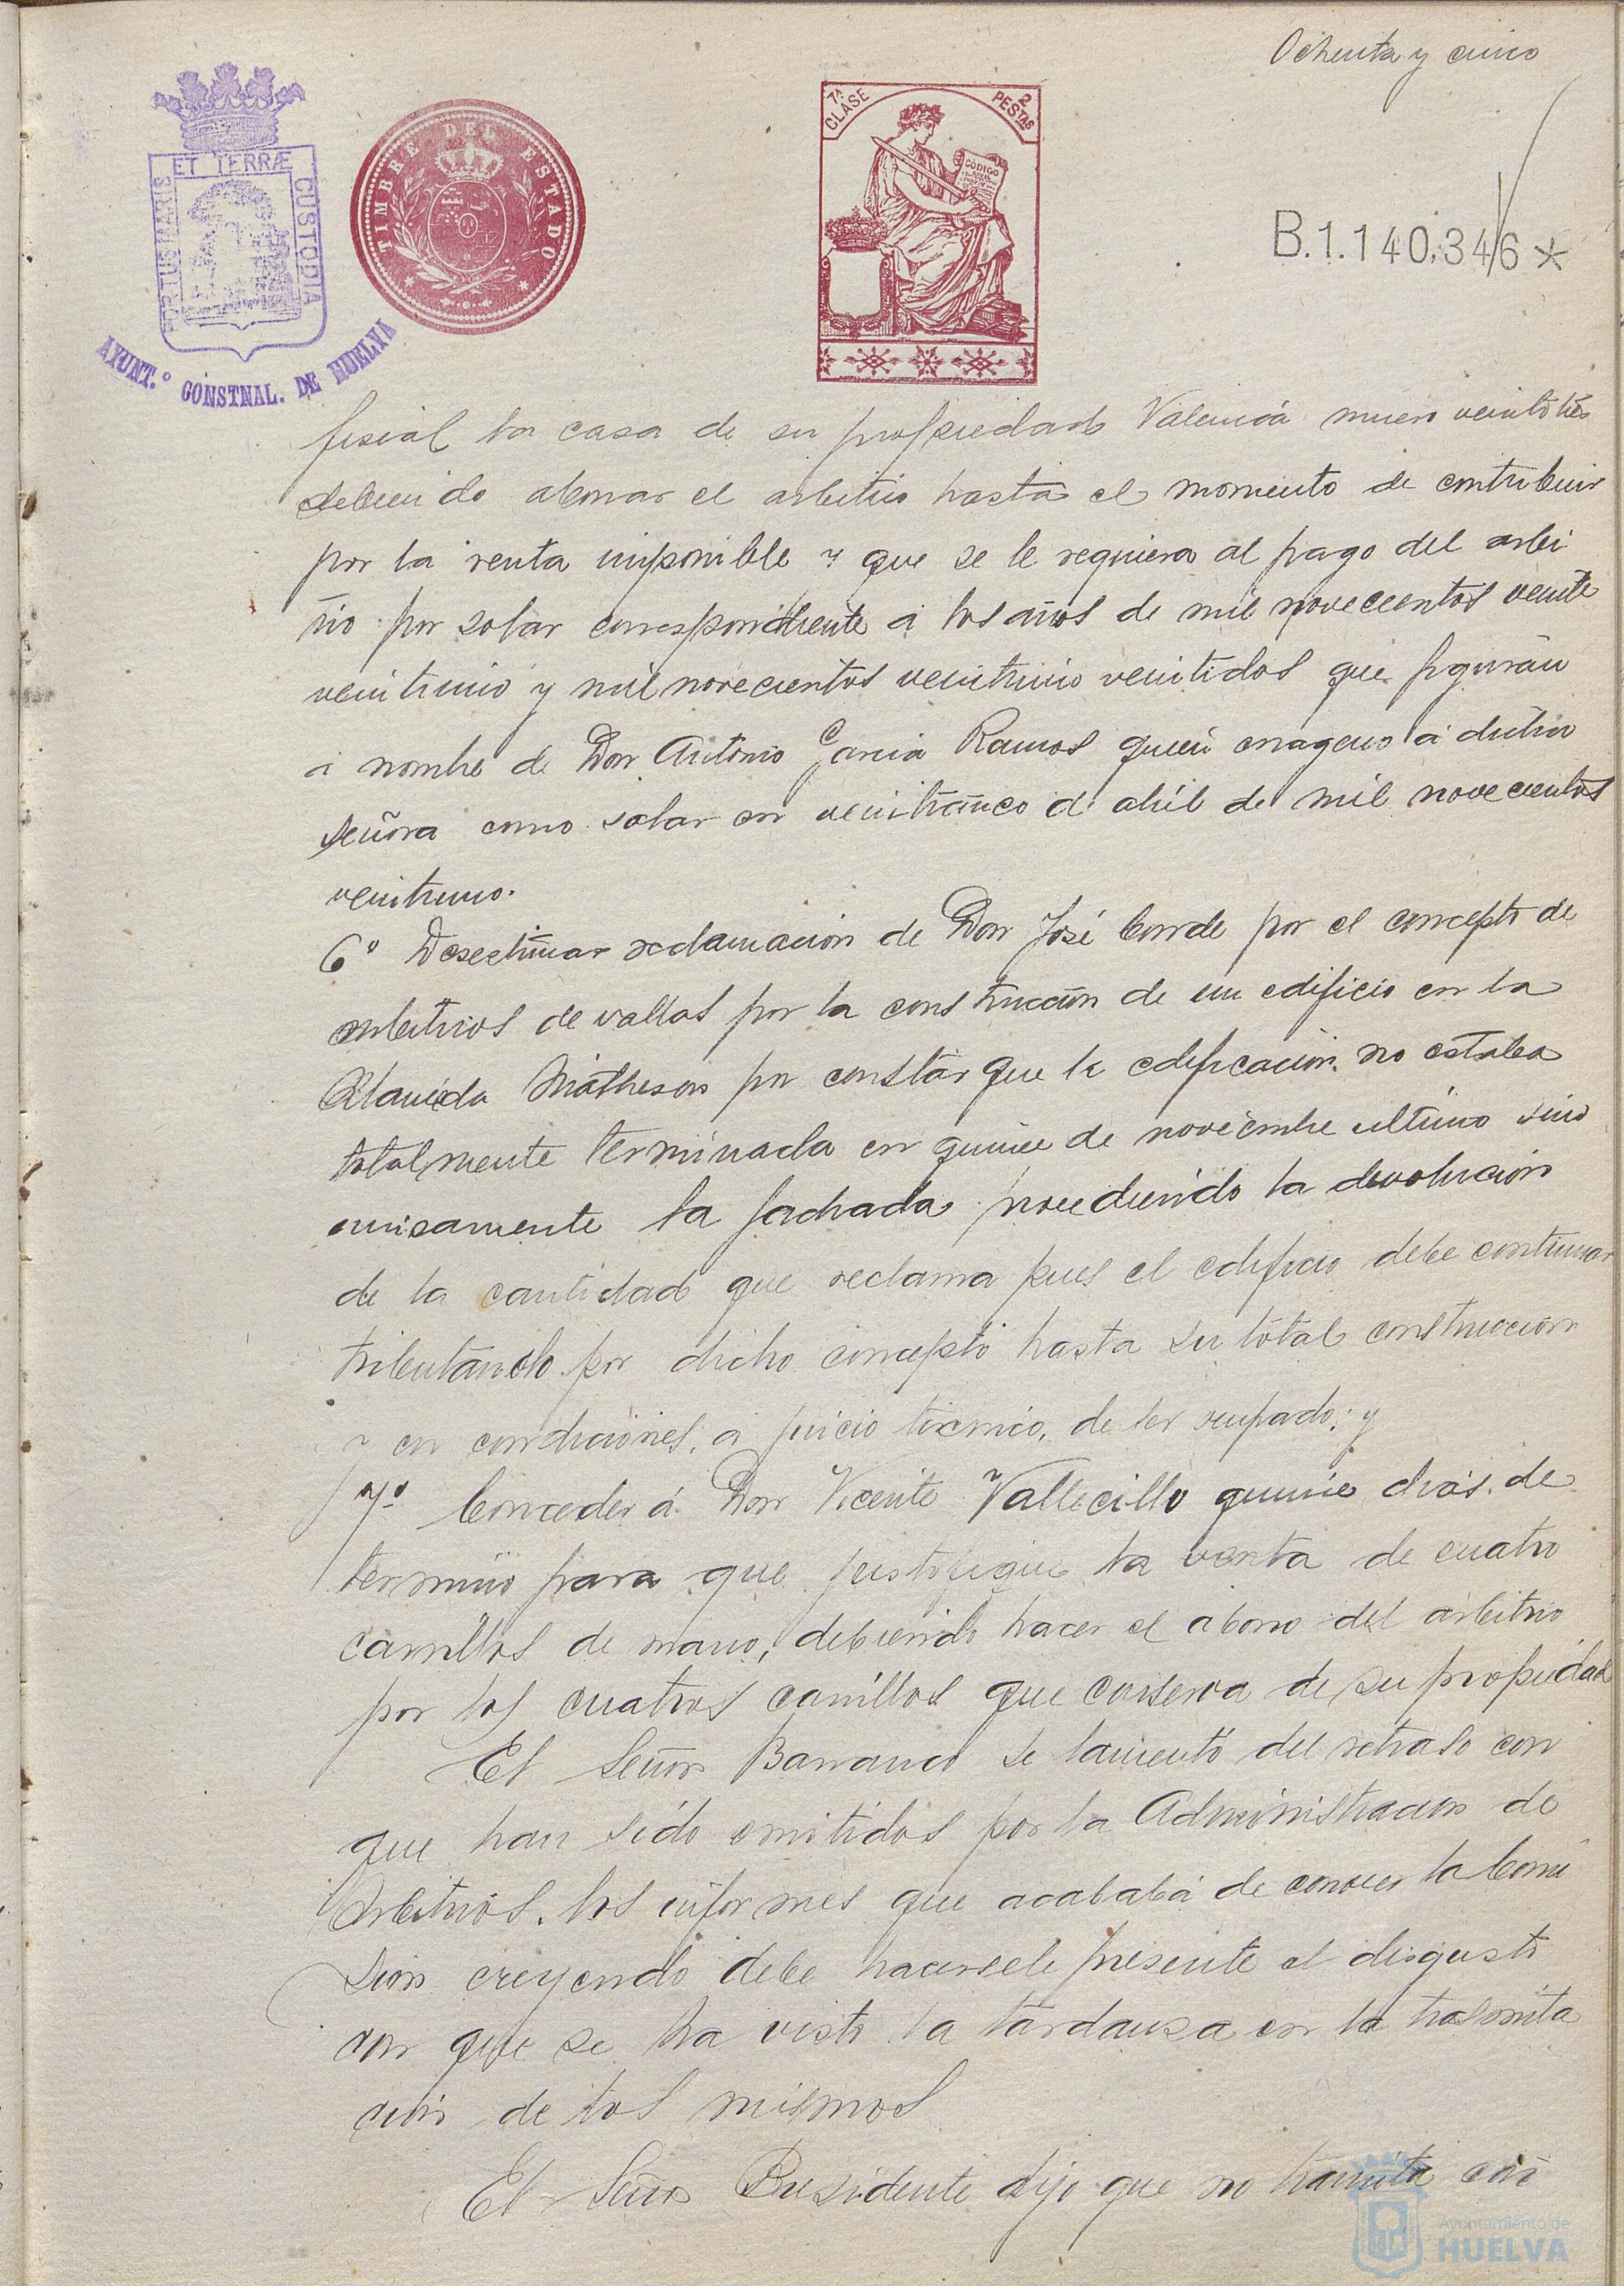 Ochenta y cinco
PORTUS MARIS ET TERRÆ CUSTODIA
AYUNT.º CONSTNAL. DE HUELVA
TIMBRE DEL ESTADO
7ª CLASE
2 PESTAS
CÓDIGO
B.1.140.346 *
fiscal la casa de su propiedad Valencia nuero veintitres
debiendo abonar el arbitrio hasta el momento de contribuir
por la renta imponible y que se le requiera al pago del arbi
trio por solar correspondiente a los años de mil novecientos veinte
veintiuno y mil novecientos veintiuno veintidos que figuran
a nombre de Don Antonio Garcia Ramos quien enageno a dicha
señora como solar en veinticinco de abril de mil novecientos
veintiuno.
6º Desestimar reclamacion de Don José Conde por el concepto de
arbitrios de vallas por la construccion de un edificio en la
Alameda Matheson por constar que la edificacion no estaba
totalmente terminada en quince de noviembre ultimo sino
unicamente la fachada procediendo la devolucion
de la cantidad que reclama pues el edificio debe continuar
tributando por dicho concepto hasta su total construccion
y en condiciones, a juicio tecnico, de ser ocupado; y
7º Conceder á Don Vicente Vallecillo quince dias de
termino para que justifique la venta de cuatro
carrillos de mano, debiendo hacer el abono del arbitrio
por los cuatros carrillos que conserva de su propiedad
El Señor Barranco se lamentó del retraso con
que han sido emitidos por la Administracion de
Arbitrios los informes que acababa de conocer la Comi
sion creyendo debe hacersele presente el disgusto
con que se ha visto la tardanza en la trasmita
cion de los mismos
El Señor Presidente dijo que no tramita con
Ayuntamiento de
HUELVA